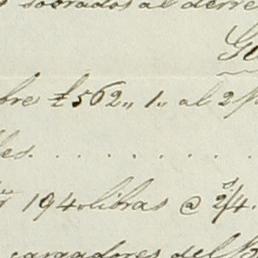 sobrados al derre
Ga
bre £562,, 1,, al 2 p
les. . . . . . . . . .
194 libras @ 2/4.
cargadores del B